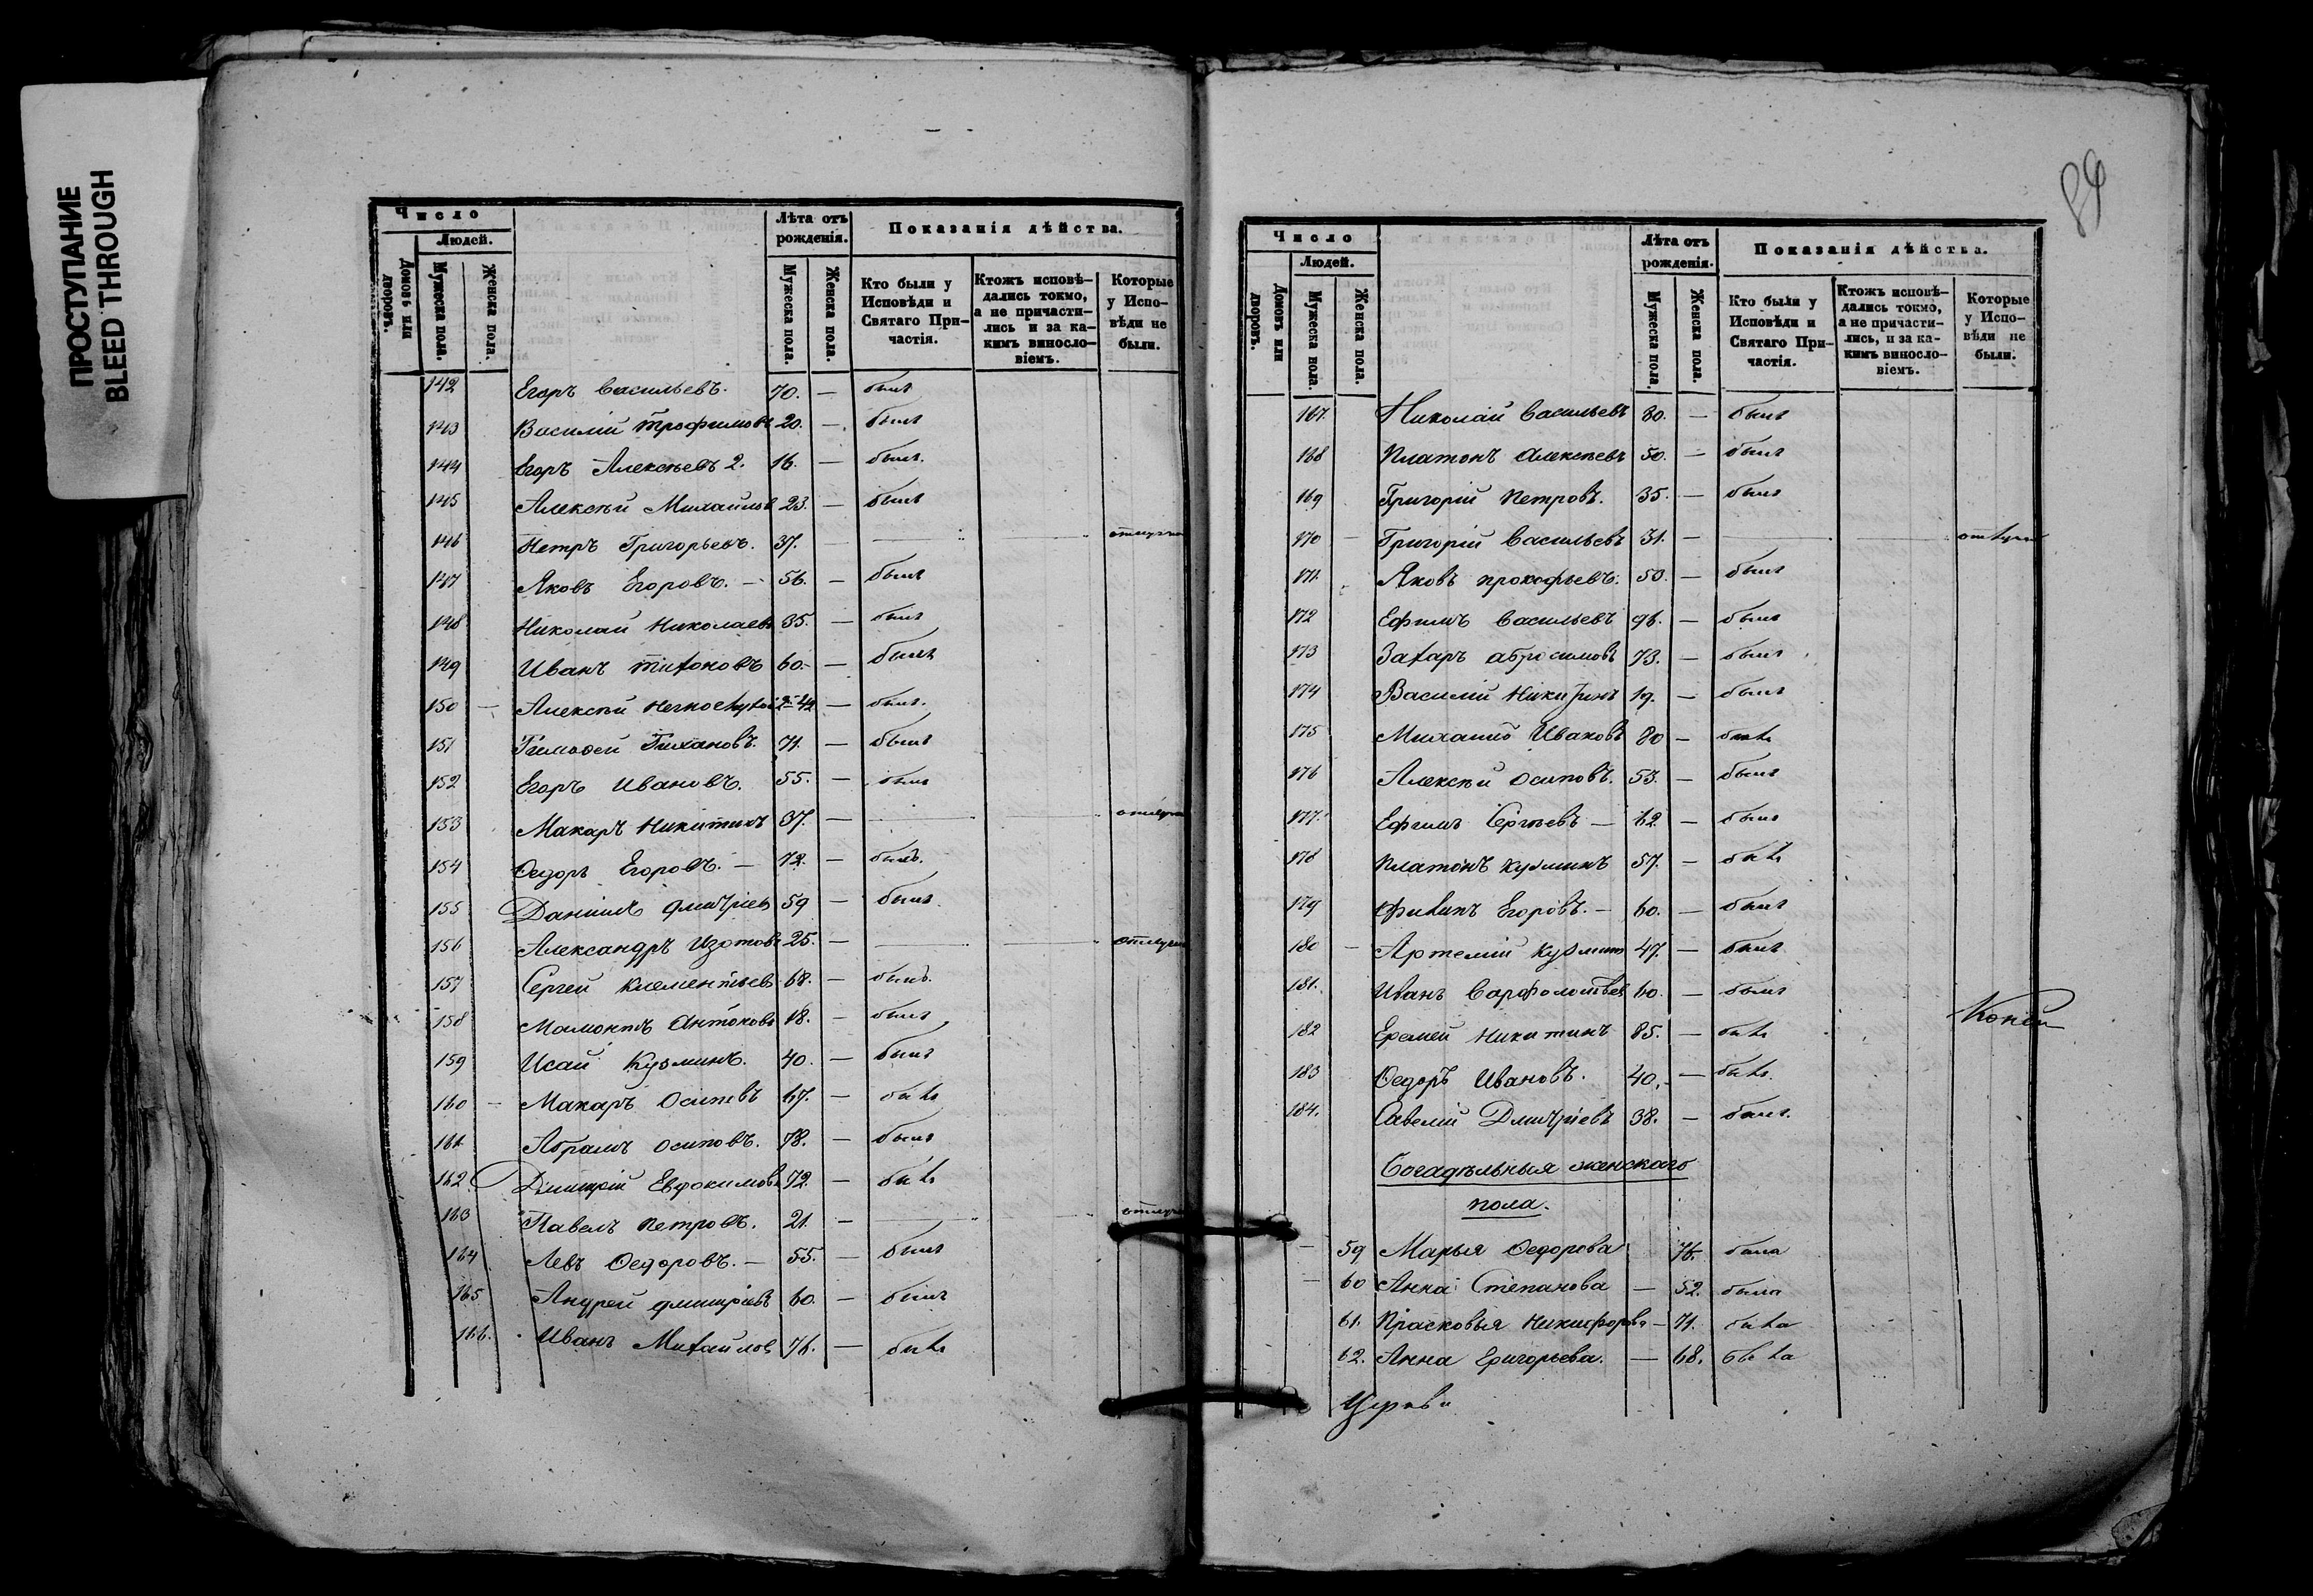 ПРОСТУПАНИЕ
BLEED THROUGH
Число
Людей.
Домовъ или дворовъ.
Мужеска пола.
Женска пола.
Лѣта отъ рожденія.
Мужеска пола.
Женска пола.
Показанія дѣйства.
Кто были у Исповѣди и Святаго Причастія.
Ктожъ исповѣдались токмо, а не причастились и за какимъ винословіемъ.
Которые у Исповѣди не были.
142 Егоръ Васильевъ. 70. — былъ
143 Василій Трофимовъ 20. — былъ
144 Егоръ Алексѣевъ 2. 16. — былъ.
145 Алексѣй Михайловъ 23. — былъ
146 Петръ Григорьевъ. 37. —
147 Яковъ Егоровъ. — 56. — былъ
148 Николай Николаевъ 35. — былъ
149 Иванъ Тихоновъ 60. — былъ
150 — Алексѣй — былъ.
151 Тимофей Тихановъ. 71. — былъ
152 Егоръ Ивановъ. 55. — былъ
153 Макаръ Никитинъ 37. —
154 Ѳедоръ Егоровъ. — 72. — былъ.
155 Даніилъ Дмитріев 59 — былъ
156 Александръ Изотовъ 25. —
157 Сергей Клементьев 68. — былъ.
158 Мамонтъ Антоновъ 18. — былъ
159 Исай Кузминъ. 40. — былъ
160 — Макаръ Осиповъ 67. — былъ
161 Абрамъ Осиповъ. 78. — былъ
162 Дмитрій Евдокимовъ 72. — былъ
163 Павелъ Петровъ. 21. —
164 Левъ Ѳедоровъ. — 55. — былъ
165 Андрей Дмитріевъ 60. — былъ
166. Иванъ Михайлов 76. — былъ
Число
Людей.
Домовъ или дворовъ.
Мужеска пола.
Женска пола.
Лѣта отъ рожденія.
Мужеска пола.
Женска пола.
Показанія дѣйства.
Кто были у Исповѣди и Святаго Причастія.
Ктожъ исповѣдались токмо, а не причастились, и за какимъ винословіемъ.
Которые у Исповѣди не были.
167. Николай Васильевъ — былъ
168 Платонъ Алексѣевъ 50. — былъ
169 Григорій Петровъ. 35. — былъ
170 — Григорій Васильевъ 31. —
171. Яковъ Прокофьевъ. 50. — былъ
172 Ефимъ Васильевъ 96. — былъ
173 Захаръ Абросимовъ 73. — былъ
174 Василій Никитинъ 19. — былъ
175 Михаилъ Ивановъ 80 — былъ
176 Алексѣй Осиповъ. 53. — былъ
177. Ефимъ Сергѣевъ — 62 — былъ
178 Платонъ Кузминъ 57. — былъ
179 Филипъ Егоровъ. — 60. — былъ
180 — Артемій Кузмин 47. — былъ
181. Иванъ Варфоломѣев 60. — былъ
182 Еремей Никитинъ 85. — былъ
183 Ѳедоръ Ивановъ. 40. — былъ.
184. Савелій Дмитріевъ 38. — былъ.
Богадѣльныя женскаго
пола.
— 59 Марья Ѳедорова 76. была
— 60 Анна Степанова — 52. была
61. Прасковья Никифорова — 71. была
62. Анна Григорьева. — 68. была